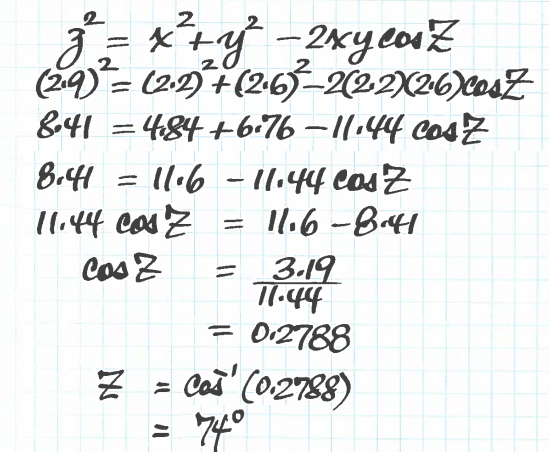 z² = x² + y² - 2xy cos Z
(2.9)² = (2.2)² + (2.6)² - 2(2.2)(2.6) cos Z
8.41 = 4.84 + 6.76 - 11.44 cos Z
8.41 = 11.6 - 11.44 cos Z
11.44 cos Z = 11.6 - 8.41
cos Z = 3.19/11.44
= 0.2788
Z = cos⁻¹(0.2788)
= 74°